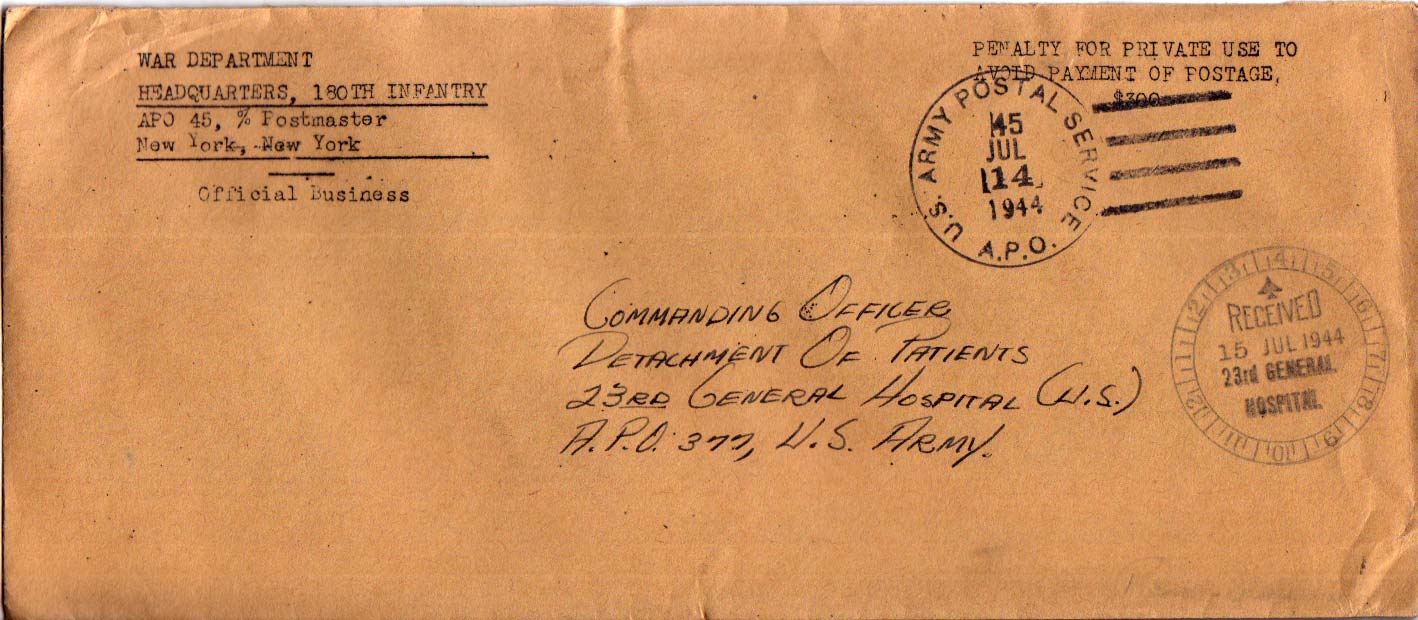 WAR DEPARTMENT
HEADQUARTERS, 180TH INFANTRY
APO 45, % Postmaster
New York, New York
Official Business
PENALTY FOR PRIVATE USE TO
AVOID PAYMENT OF POSTAGE,
$300
U.S. ARMY POSTAL SERVICE
45
JUL
14
1944
A.P.O.
COMMANDING OFFICER
DETACHMENT OF PATIENTS
23RD GENERAL HOSPITAL (U.S.)
A.P.O. 377, U.S. ARMY.
1 2 3 4 5 6 7 8 9 10 11 12
RECEIVED
15 JUL 1944
23rd GENERAL
HOSPITAL